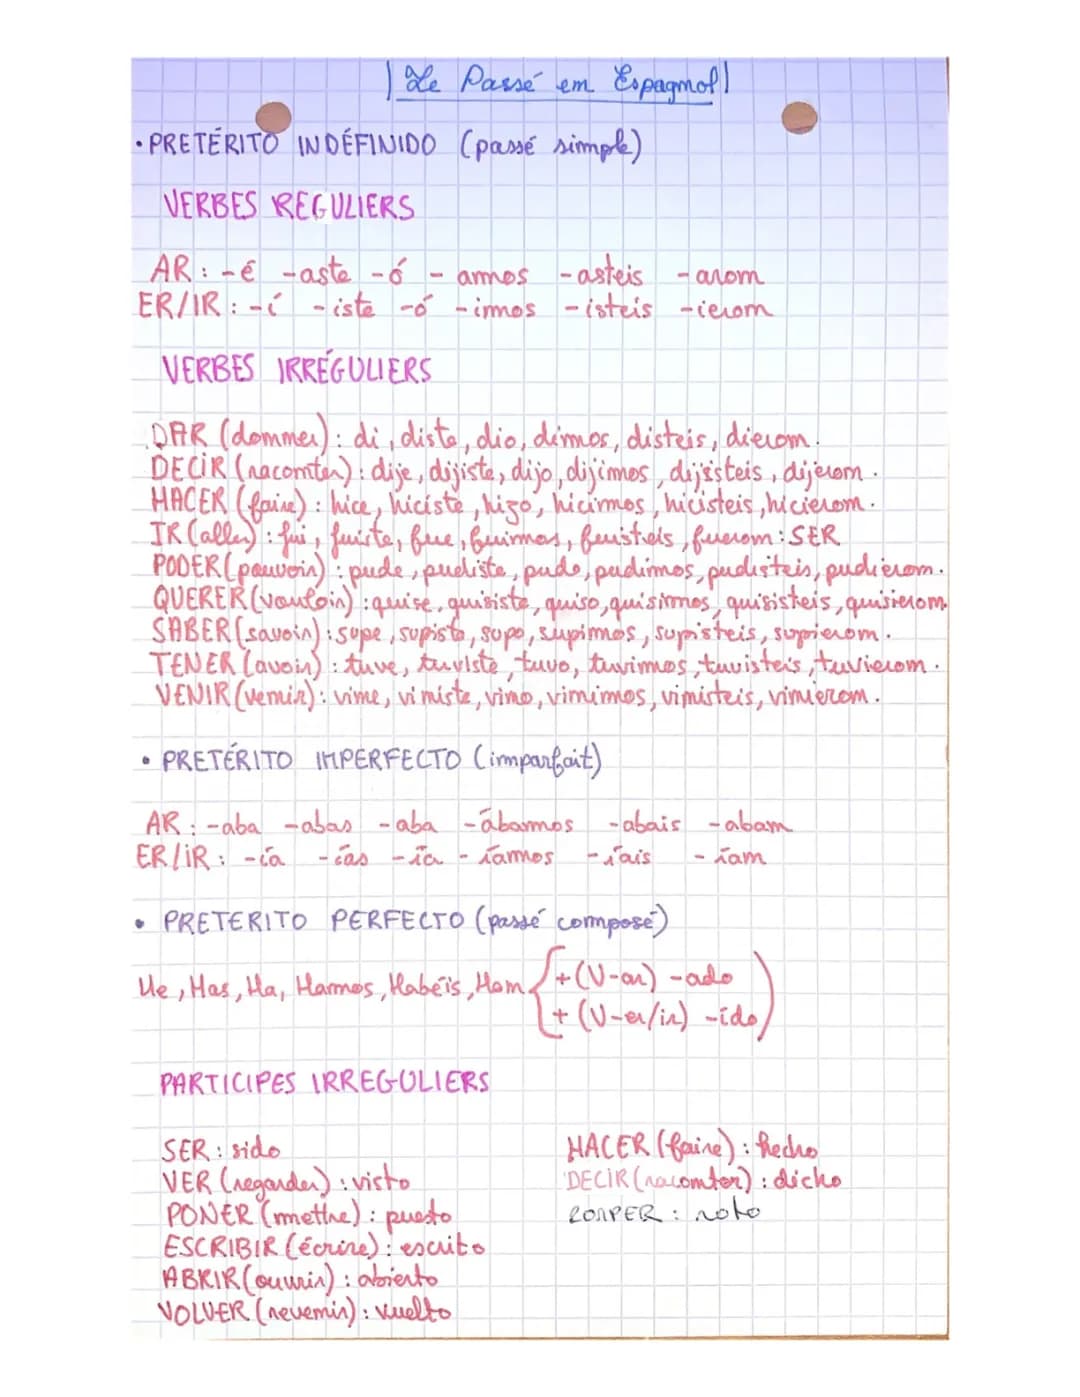 Le Passé en Espagnol
• PRETÉRITO INDÉFINIDO (passé simple)
VERBES REGULIERS
AR : -é -aste -ó - amos -asteis -aron
ER/IR : -í -iste -ó -imos -isteis -ieron
VERBES IRRÉGULIERS
DAR (donner) : di, diste, dio, dimos, disteis, dieron.
DECIR (raconter) : dije, dijiste, dijo, dijimos, dijisteis, dijeron.
HACER (faire) : hice, hiciste, hizo, hicimos, hicisteis, hicieron.
IR (aller) : fui, fuiste, fue, fuimos, fuisteis, fueron : SER
PODER (pouvoir) : pude, pudiste, pudo, pudimos, pudisteis, pudieron.
QUERER (vouloir) : quise, quisiste, quiso, quisimos, quisisteis, quisieron
SABER (savoir) : supe, supiste, supo, supimos, supisteis, supieron.
TENER (avoir) : tuve, tuviste, tuvo, tuvimos, tuvisteis, tuvieron.
VENIR (venir) : vine, viniste, vino, vinimos, vinisteis, vinieron.
• PRETÉRITO IMPERFECTO (imparfait)
AR : -aba -abas -aba -ábamos -abais -aban
ER/IR : -ía -ías -ía -íamos -íais -ían
• PRETERITO PERFECTO (passé composé)
He, Has, Ha, Hamos, Habéis, Han { +(V-ar) -ado
+ (V-er/ir) -ido )
PARTICIPES IRREGULIERS
SER : sido
VER (regarder) : visto
PONER (mettre) : puesto
ESCRIBIR (écrire) : escrito
ABRIR (ouvrir) : abierto
VOLVER (revenir) : vuelto
HACER (faire) : hecho
DECIR (raconter) : dicho
ROMPER : roto